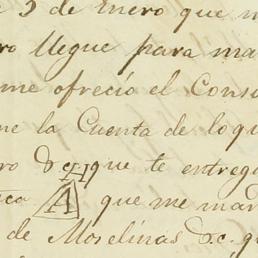 5 de Enero que
ro llegue para ma
me ofreció el Cons
ne la Cuenta de loq
ro &c A que te entreg
A que me man
de Moselinas &c. q